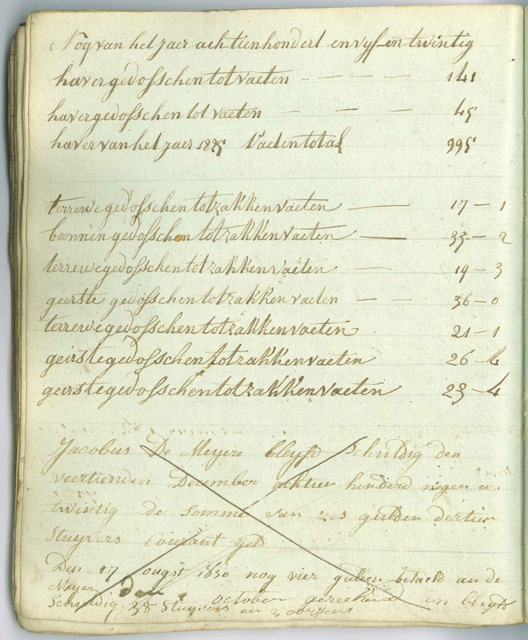 Nog van het jaer achtienhondert en vyf en twintig
haver gedosschen tot vaeten — — — — 141
haver gedosschen tot vaeten — — — 45
haver van het jaer 1825 Vaeten total 995
terrewe gedosschen tot zakken vaeten — 17 – 1
boonnen gedosschen tot zakken vaeten — 33 – 2
terrewe gedosschen tot zakken vaeten — — 19 – 3
geirste gedosschen tot zakken vaeten — — 36 – 0
terrewe gedosschen tot zakken vaeten 21 – 1
geirste gedosschen tot zakken vaeten 26 – 4
geirste gedosschen tot zakken vaeten 23 – 4
Jacobus De Meyere blyft schuldig den
veertienden December achtien honderd negen en
twintig de somme van zes gulden dertien
stuyvers courant geld
Den 17 ougst 1830 nog vier gulden betaeld an de
Meyer den october gereekend en blyft
Schuldig 38 Stuyvers en 2